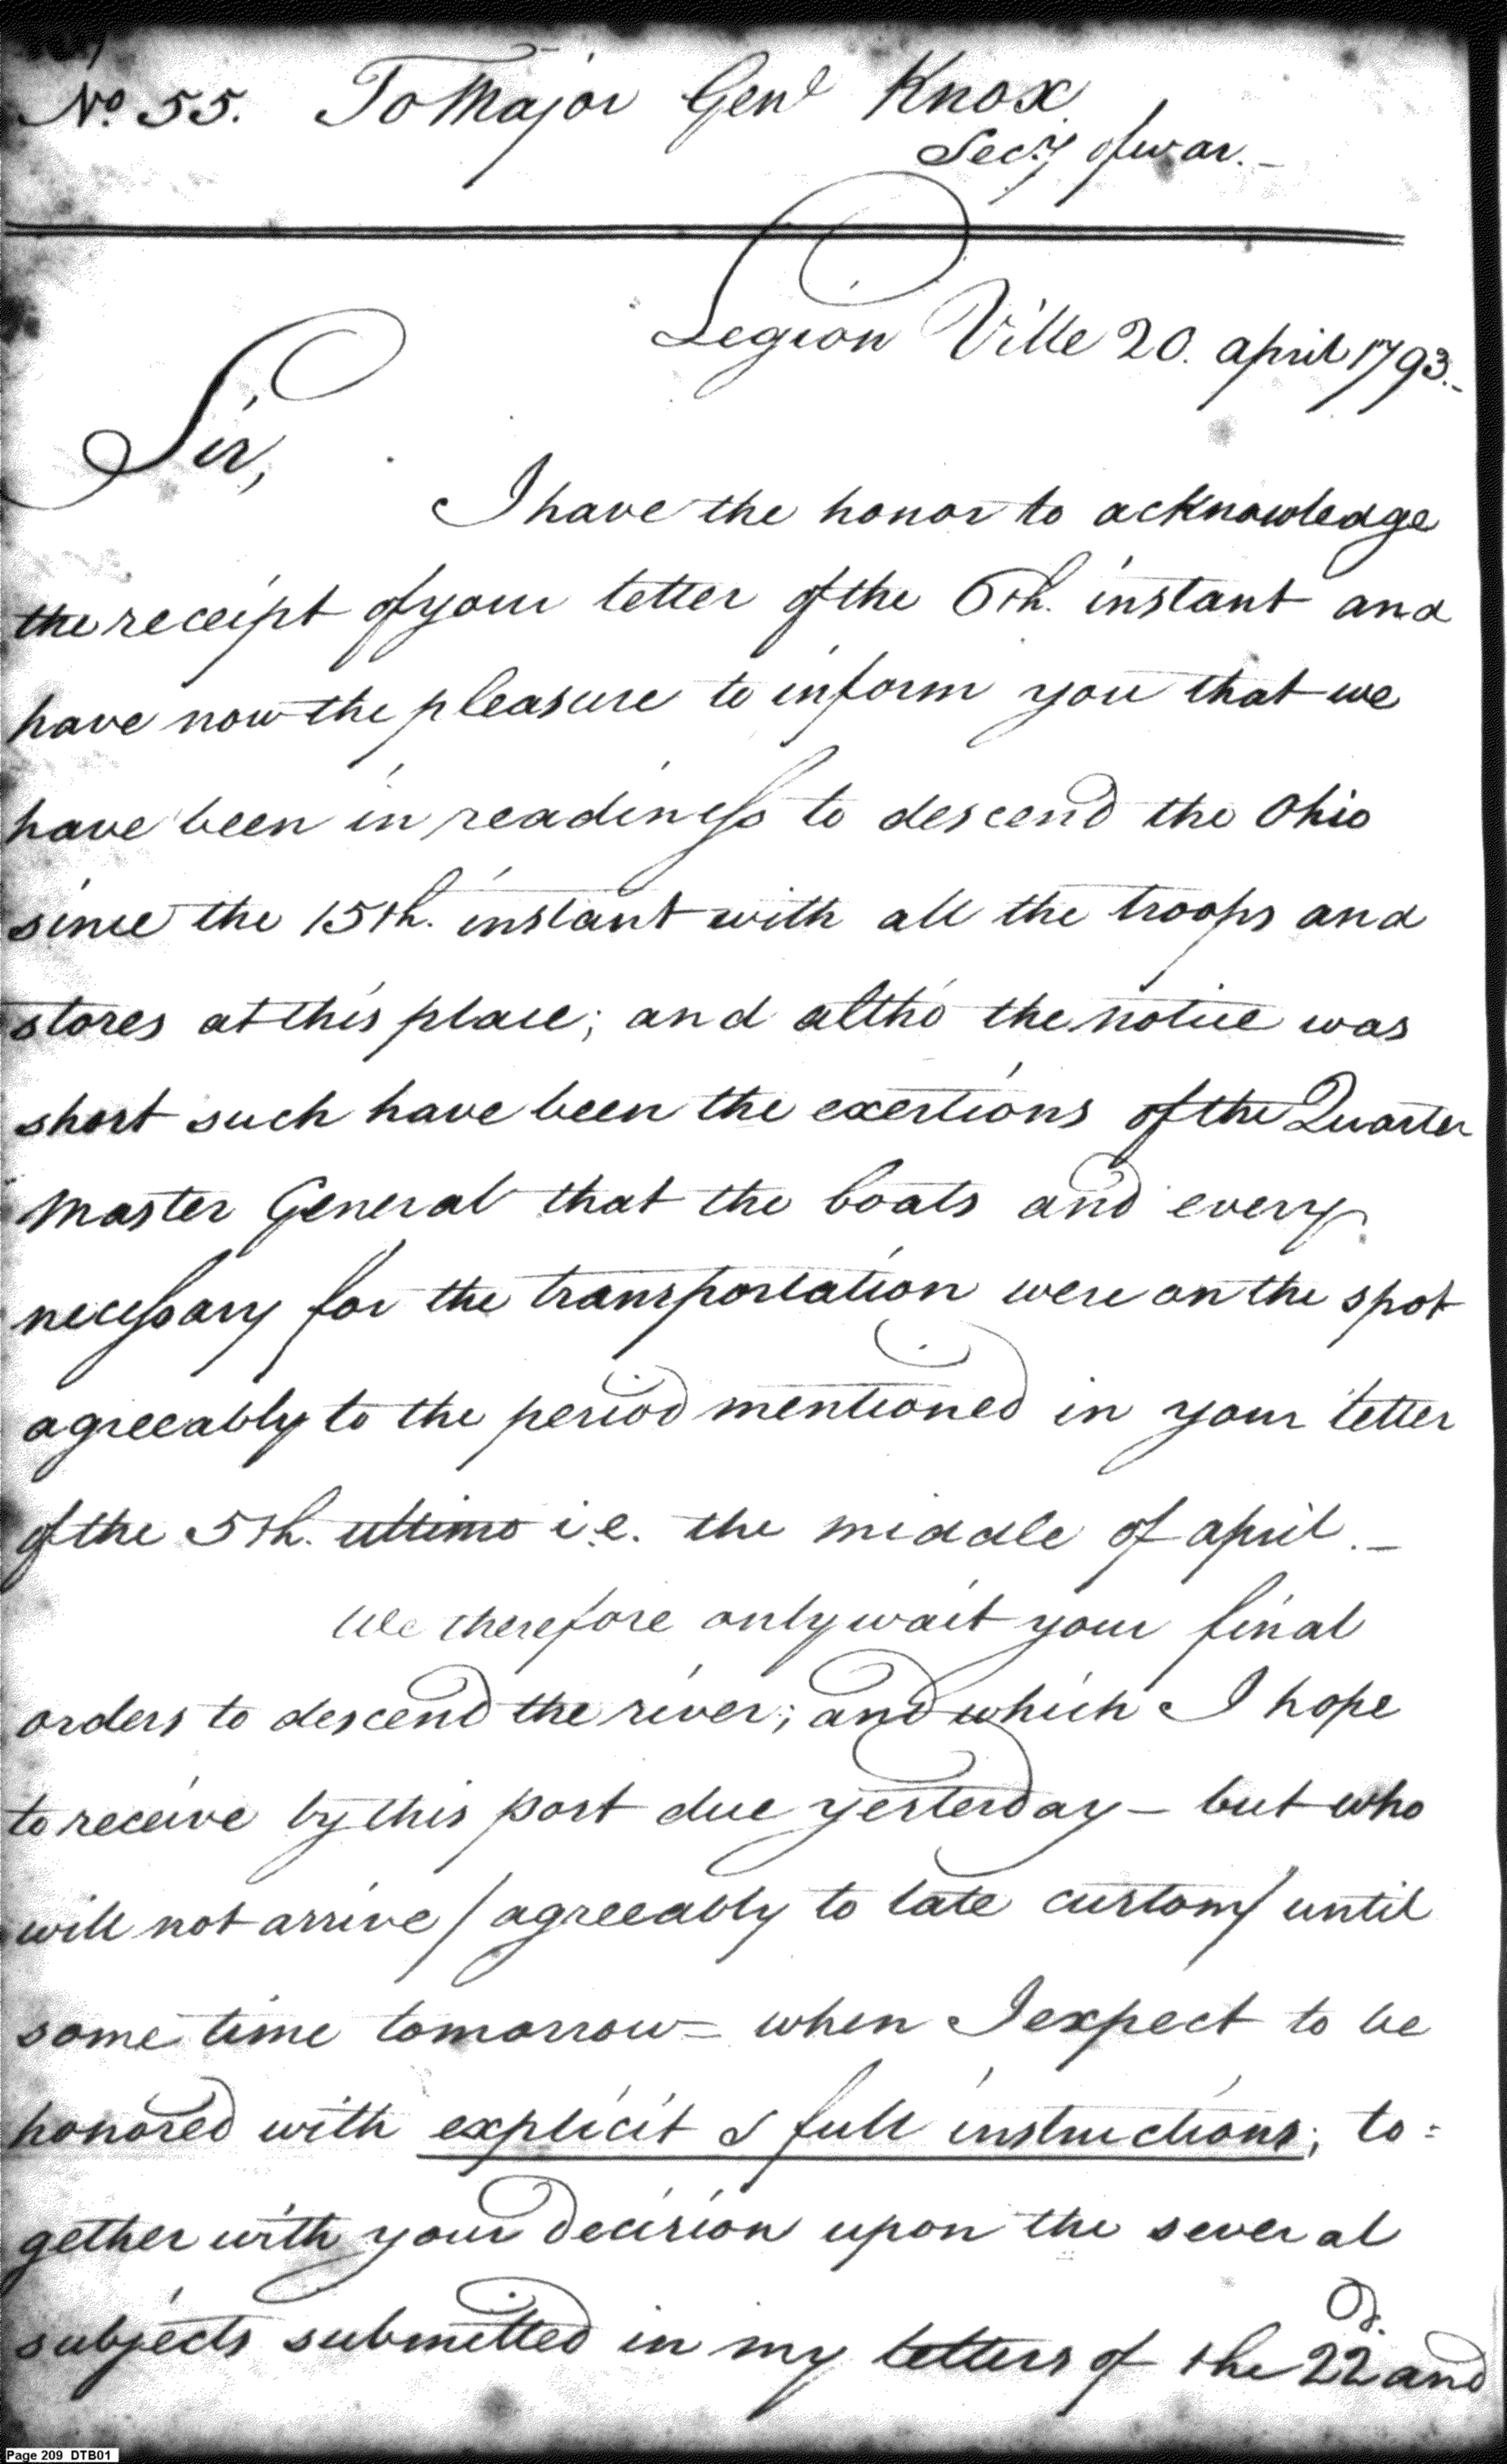 No. 55. To Major Genl Knox
Secy of war. -
Legion Ville 20. april 1793. -
Sir,
I have the honor to acknowledge
the receipt of your letter of the 6th. instant and
have now the pleasure to inform you that we
have been in readiness to descend the Ohio
since the 15th. instant with all the troops and
stores at this place; and altho the notice was
short such have been the exertions of the Quarter
Master General that the boats and every
necessary for the transportation were on the spot
agreeably to the period mentioned in your letter
of the 5th. ultimo i.e. the middle of april. -
We therefore only wait your final
orders to descend the river; and which I hope
to receive by this post due yesterday - but who
will not arrive / agreeably to late custom / until
some time tomorrow - when I expect to be
honored with explicit & full instructions; to=
gether with your decision upon the several
subjects submitted in my letters of the 22d. and
Page 209 DTB01